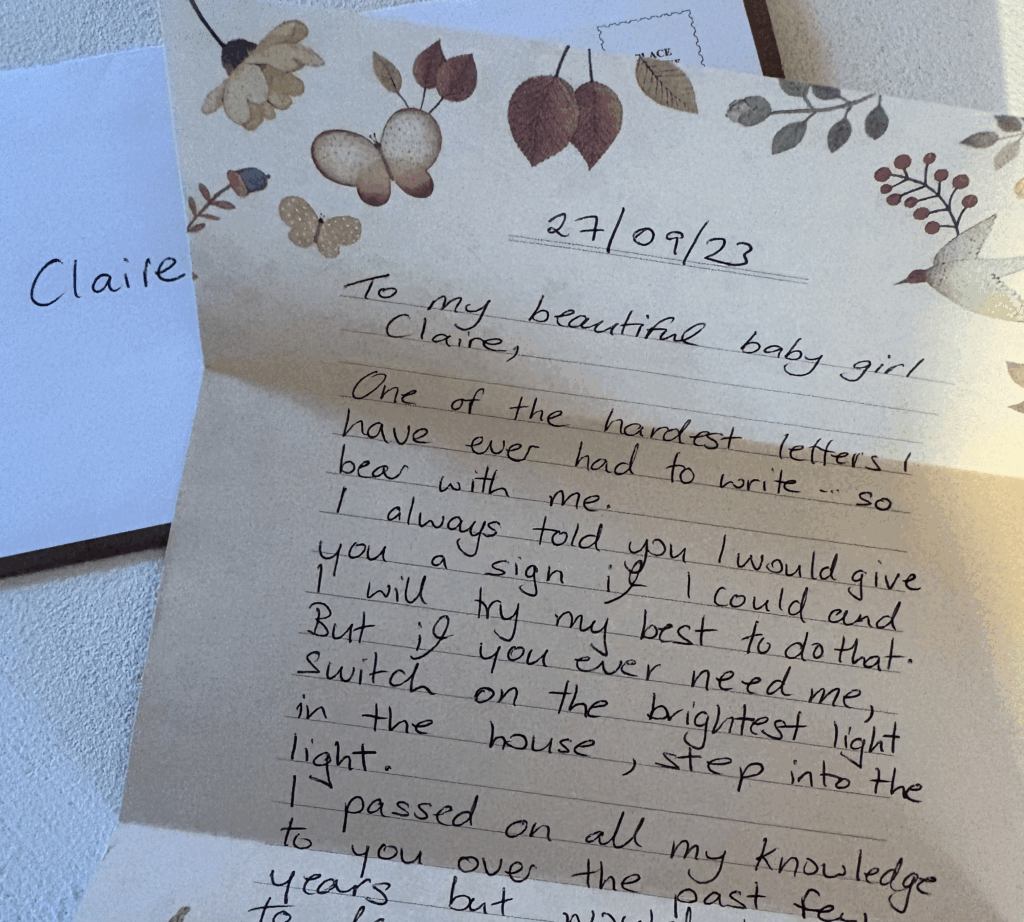 PLACE
Claire
27/09/23
To my beautiful baby girl
Claire,
One of the hardest letters I
have ever had to write ... so
bear with me.
I always told you I would give
you a sign if I could and
I will try my best to do that.
But if you ever need me,
switch on the brightest light
in the house, step into the
light.
I passed on all my knowledge
to you over the past few
years but
to